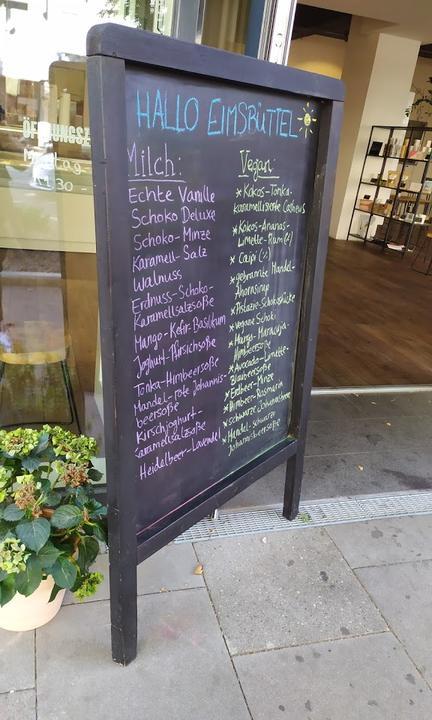 HALLO EIMSBÜTTEL
Milch:
Echte Vanille
Schoko Deluxe
Schoko-Minze
Karamell-Salz
Walnuss
Erdnuss-Schoko-
Karamellsalzsoße
Mango-Kefir-Basilikum
Joghurt-Pfirsichsoße
Tonka-Himbeersoße
Mandel-rote Johannis-
beersoße
Kirschjoghurt-
Karamellsalzsoße
Heidelbeer-Lavendel
Vegan:
* Kokos-Tonka-
karamellisierte Cashews
* Kokos-Ananas-
Limette-Rum (!)
* Caipi (!)
* gebrannte Mandel-
Ahornsirup
* Pistazie-Schokostücke
* vegane Schoki
* Mango-Maracuja-
Himbeersoße
* Avocado-Limette-
Blaubeersoße
* Erdbeer-Minze
* Himbeer-Rosmarin
* schwarze Johannisbeere
* Mandel-schwarze
Johannisbeersoße